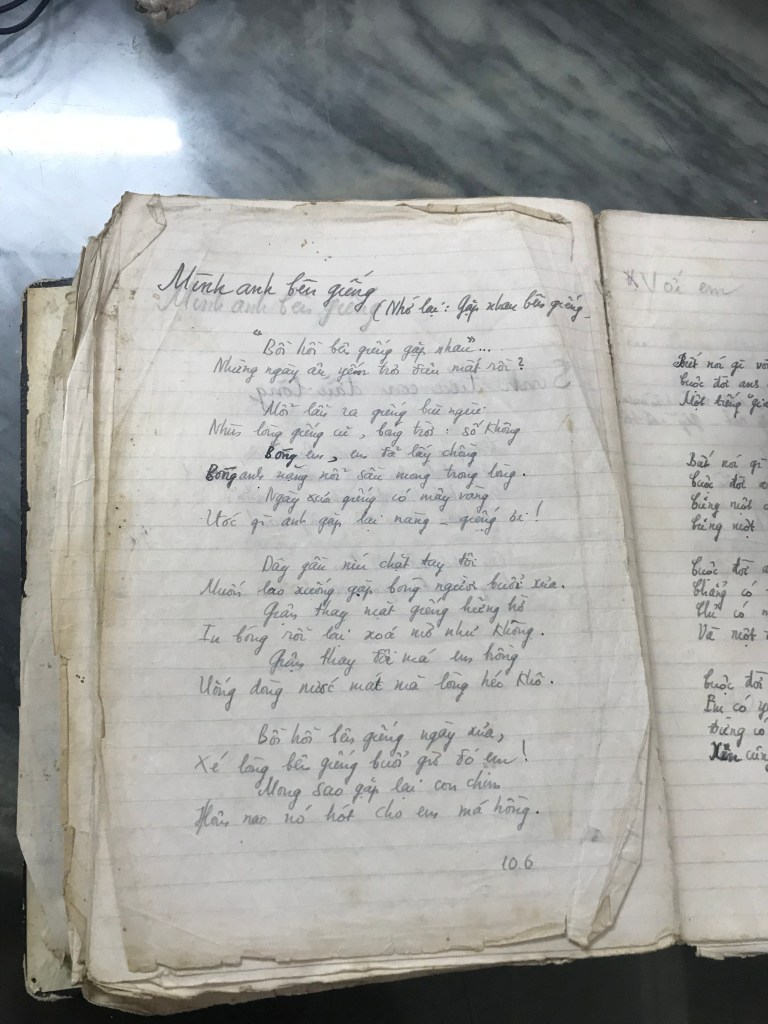 Mình anh bên giếng
(Nhớ lại: Gặp nhau bên giếng_
"Bồi hồi bên giếng gặp nhau"...
Những ngày ấy yếm trở đâu mất rồi?
Mỗi lần ra giếng bùi ngùi
Nhìn lòng giếng cũ, bóng trời: số không
Bóng em, em đã lấy chồng
Bóng anh nặng nỗi sầu mong trong lòng.
Ngày xưa giếng có mây vàng
Ước gì anh gặp lại nàng _ giếng ơi!
Dây gầu níu chặt tay tôi
Muốn lao xuống gặp bóng người buổi xưa.
Giận thay mặt giếng hững hờ
In bóng rồi lại xoá mờ như không.
Giận thay đôi má em hồng
Uống dòng nước mát mà lòng héo khô.
Bồi hồi bên giếng ngày xưa,
Xé lòng bên giếng buổi giờ đó em!
Mong sao gặp lại con chim
Hôm nao nó hót cho em má hồng.
10.6
* Với em
Biết nói gì
cuộc đời anh
Một tiếng
Biết nói gì
cuộc đời
cuộc đời
chẳng có
Và một
cuộc đời
Em có
Đừng có
Xin